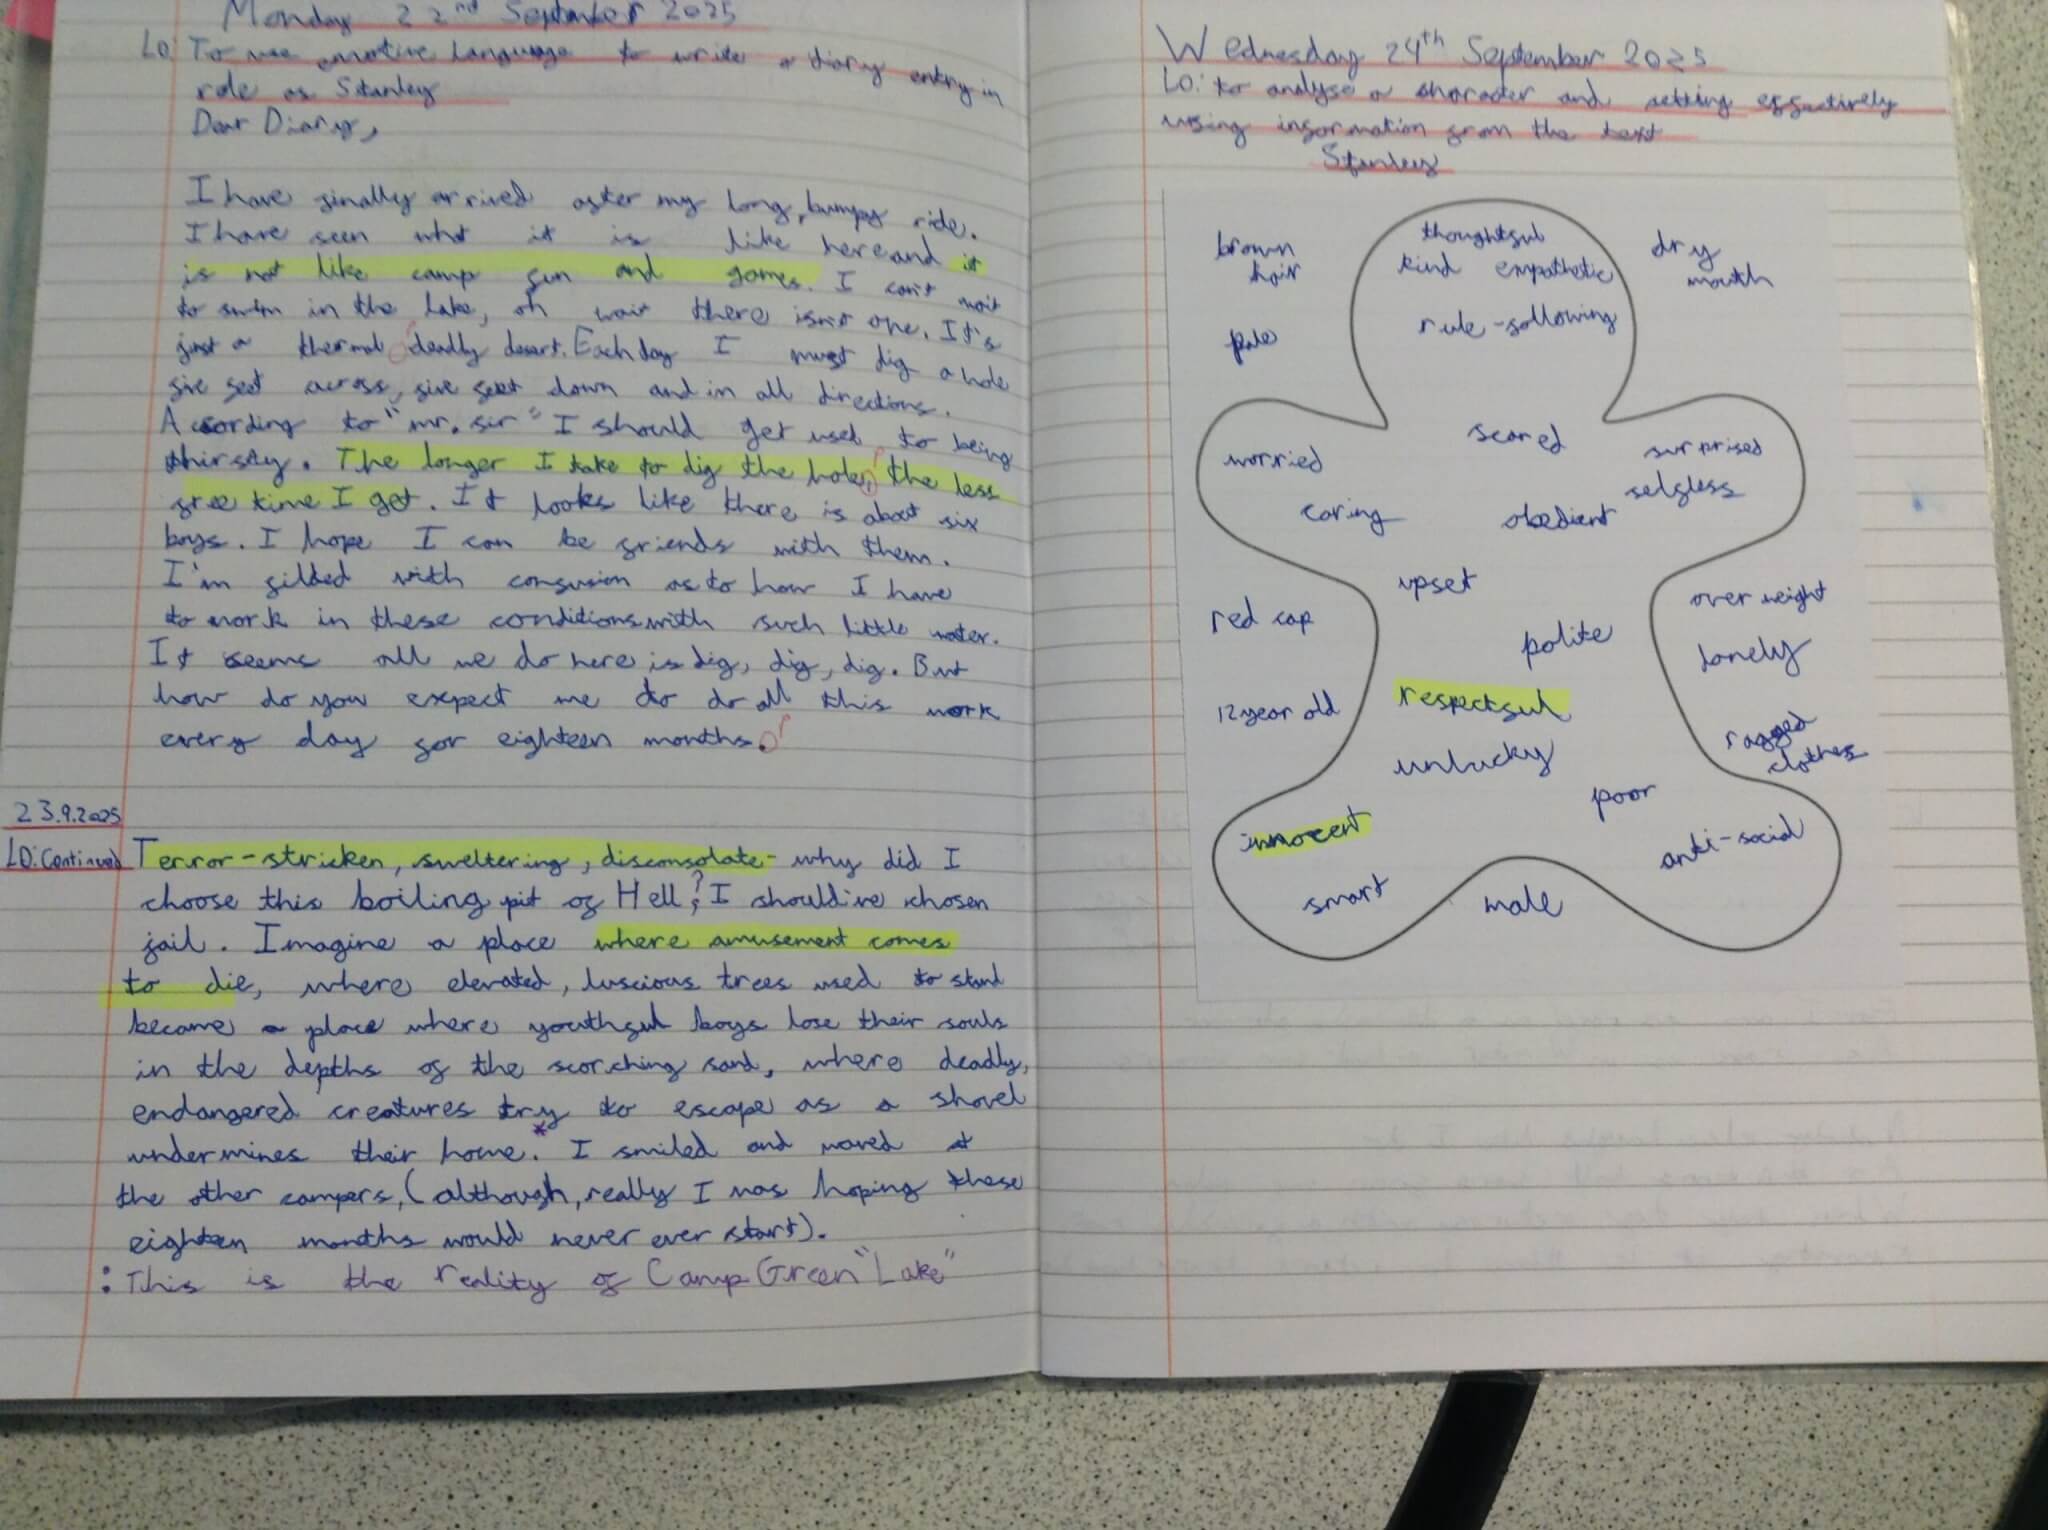 Monday 22nd September 2025
LO: To use emotive language to write a diary entry in
role as Stanley
Dear Diary,
I have finally arrived after my long, bumpy ride.
I have seen what it is like here and it
is not like camp fun and games. I can't wait
to swim in the lake, oh wait there isn't one. It's
just a thermal deadly desert. Each day I must dig a hole
five feet across, five feet down and in all directions.
According to "mr. sir" I should get used to being
thirsty. The longer I take to dig the hole, the less
free time I get. It looks like there is about six
boys. I hope I can be friends with them.
I'm filded with confusion as to how I have
to work in these conditions with such little water.
It seems all we do here is dig, dig, dig. But
how do you expect me to do all this work
every day for eighteen months.
23.9.2025
LO: Continued Terror-stricken, sweltering, disconsolate- why did I
choose this boiling pit of Hell? I should've chosen
jail. Imagine a place where amusement comes
to die, where elevated, luscious trees used to stand
became a place where youthful boys lose their souls
in the depths of the scorching sand, where deadly,
endangered creatures try to escape as a shovel
undermines their home.* I smiled and waved at
the other campers, (although, really I was hoping these
eighteen months would never ever start).
: This is the reality of Camp Green "Lake"
Wednesday 24th September 2025
LO: to analyse a character and setting effectively
using information from the text
Stanley
brown
hair
thoughtful
kind empathetic
rule-following
dry
mouth
pale
worried
scared
surprised
selfless
caring
obedient
upset
over weight
red cap
polite
lonely
12 year old
respectful
ragged
clothes
unlucky
poor
innocent
anti-social
smart
male